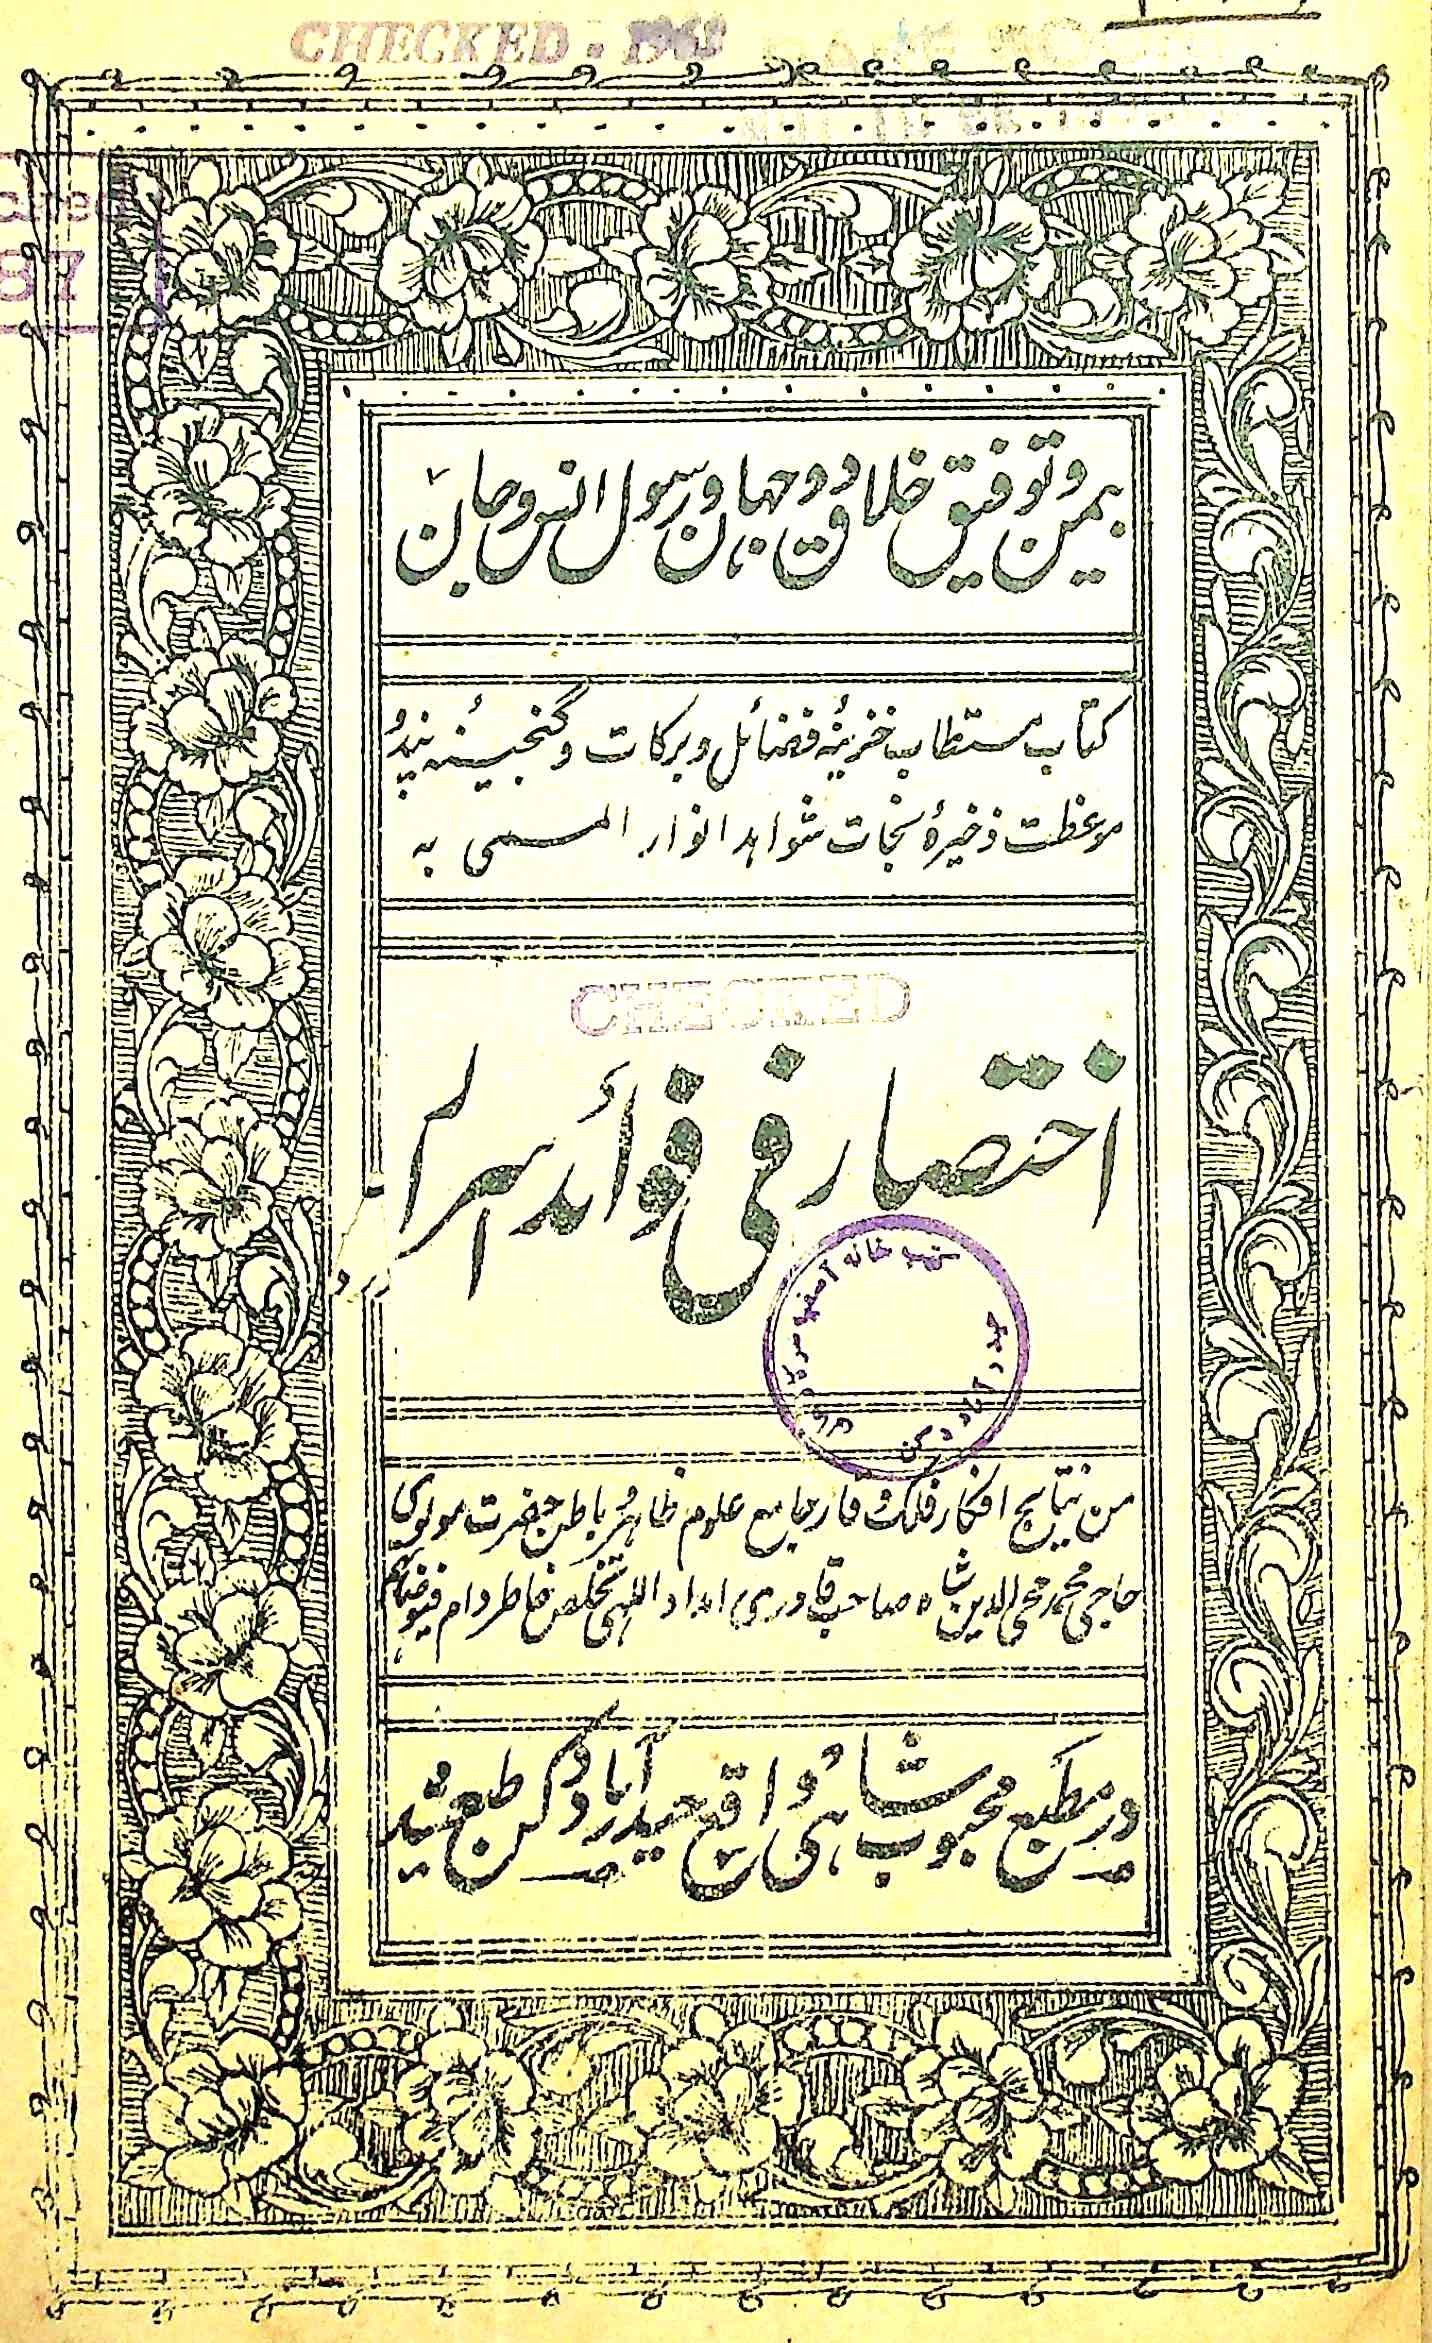 CHECKED - 1963
87
بیمن و توفیق خلاق دوجہان و رسول انس و جان
کتاب مستطاب خزینۂ فضائل و برکات و گنجینۂ پند و
موعظت ذخیرۂ نجات شواہد انوار المسمی بہ
CHECKED
اختصار فی فوائد اسرار
من نتایج افکار فلک وقار جامع علوم ظاہر و باطن حضرت مولوی
حاجی محمد محی الدین شاہ صاحب قادری امداد اللہی تخلص خاطر دام فیوضاتہم
در مطبع محبوب شاہی واقع حیدرآباد دکن طبع شد
کتب خانہ آصفیہ سرکار
حیدرآباد دکن